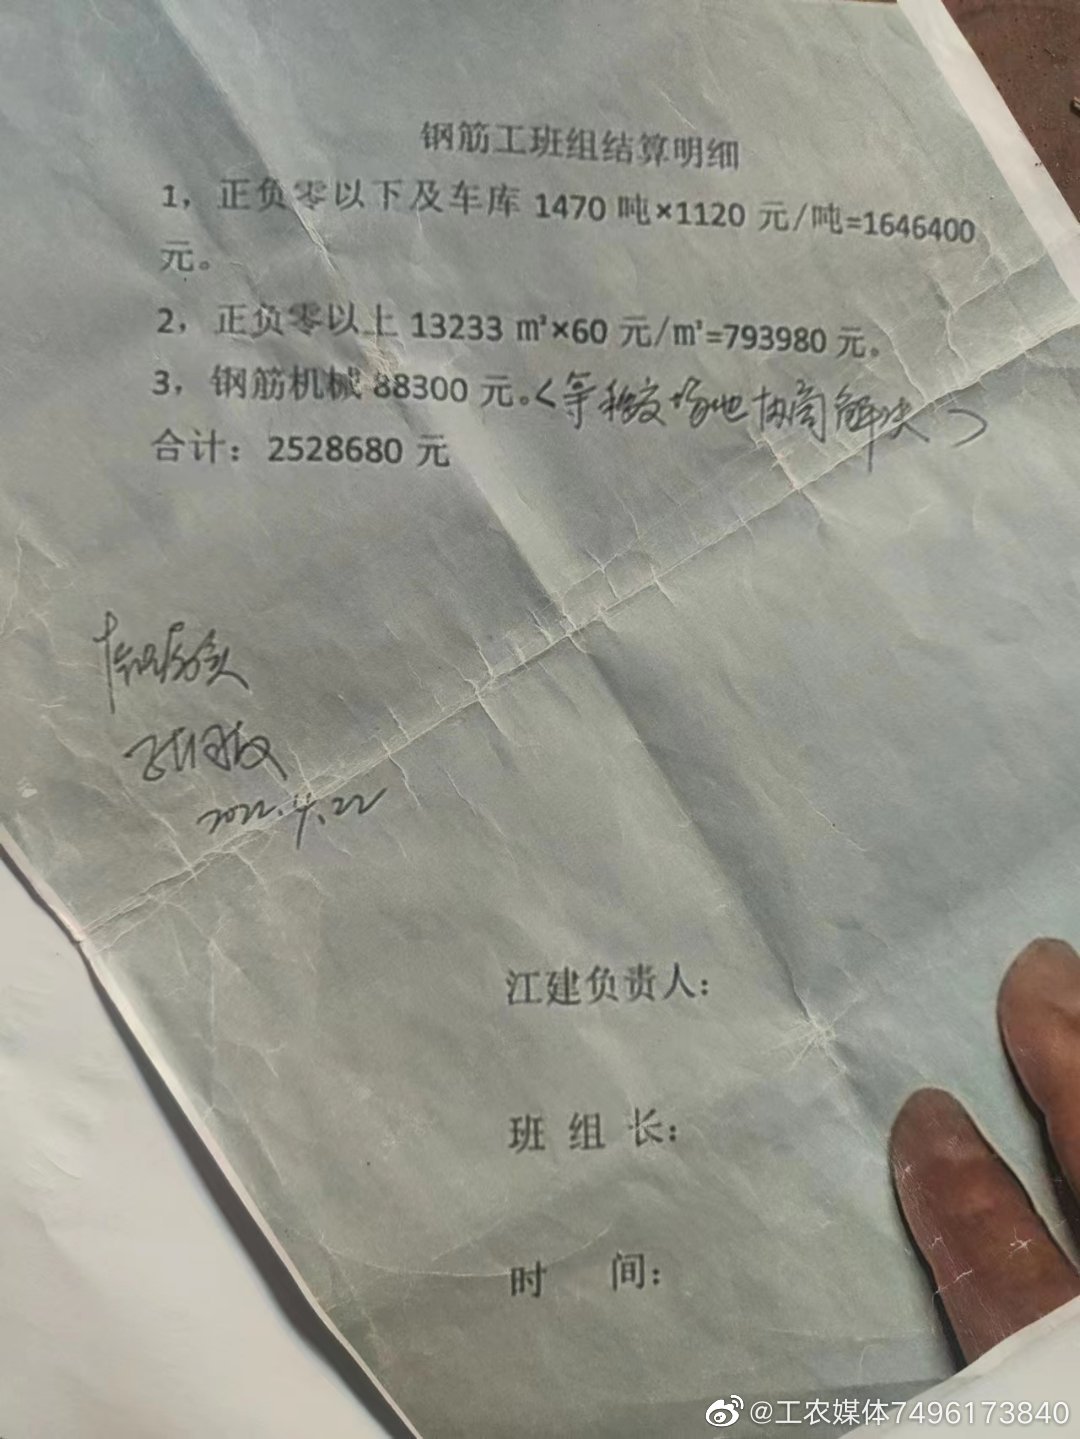 钢筋工班组结算明细
1，正负零以下及车库 1470 吨×1120 元/吨=1646400
元。
2，正负零以上 13233 ㎡×60 元/㎡=793980 元。
3，钢筋机械 88300 元。<等移交场地协商解决>
合计：2528680 元
情况属实
2022.4.22
江建负责人：
班 组 长：
时 间：
@工农媒体7496173840